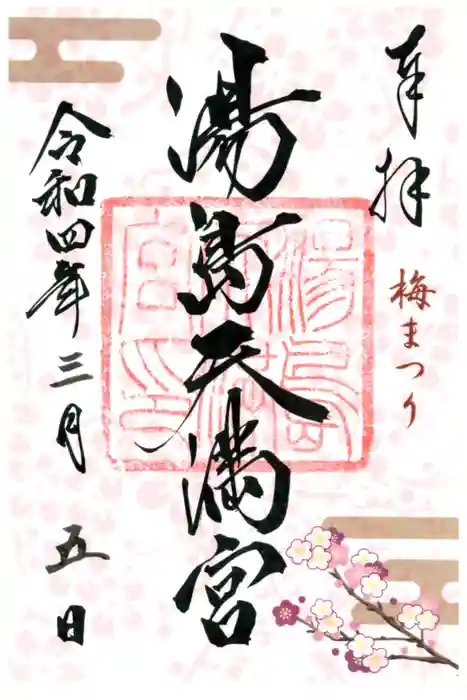 奉拝
梅まつり
湯島天満宮
令和四年三月五日